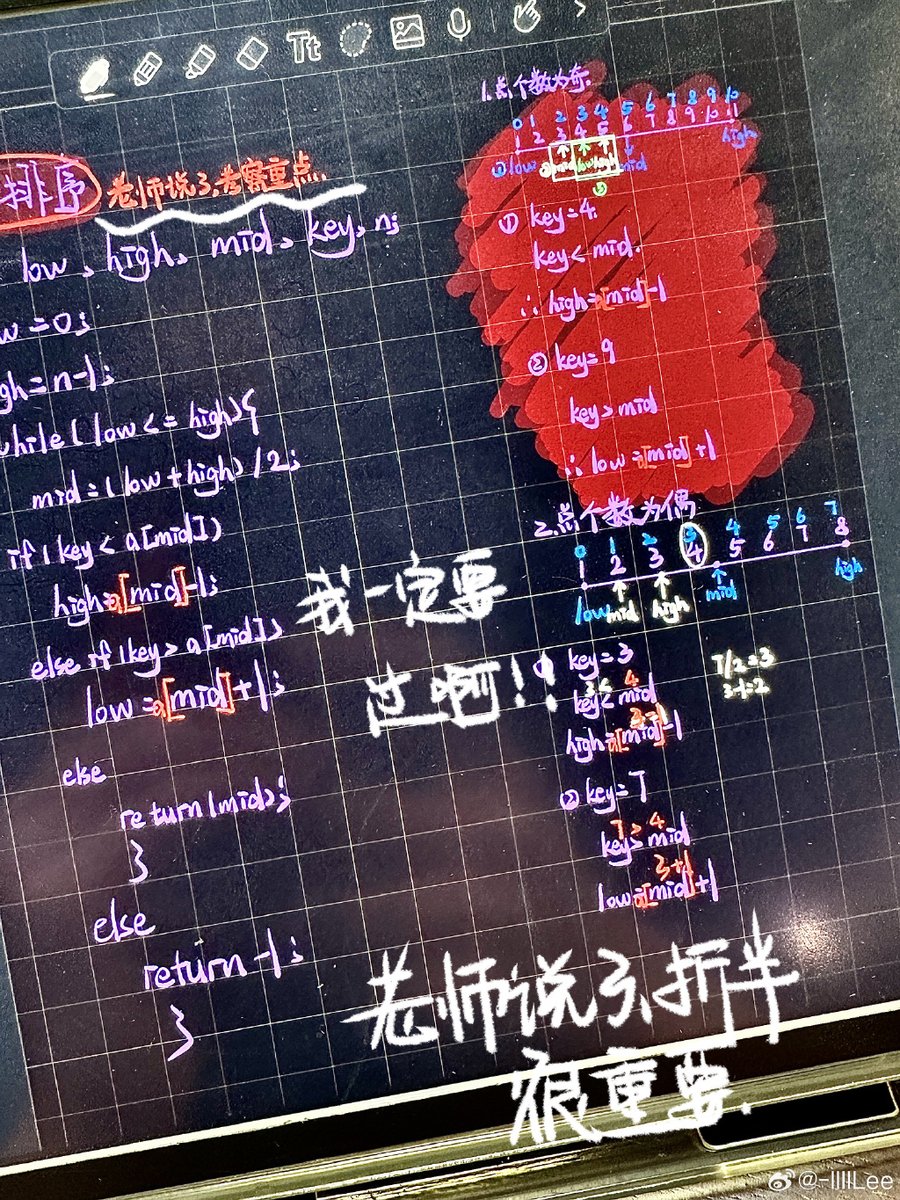 Tt
排序
老师说了,考察重点.
low, high, mid, key, n;
w=0;
gh=n-1;
while(low<=high){
mid=(low+high)/2;
if(key<a[mid])
high=a[mid]-1;
else if(key>a[mid])
low=a[mid]+1;
else
return(mid);
}
else
return-1;
}
1.总个数为奇.
0 1 2 3 4 5 6 7 8 9 10
1 2 3 4 5 6 7 8 9 10 11
low mid low high mid high
① key=4.
key<mid.
∴ high=a[mid]-1
② key=9
key>mid
∴ low=a[mid]+1
2.总个数为偶
0 1 2 3 4 5 6 7
1 2 3 4 5 6 7 8
low mid high mid high
① key=3
3< 4
key<mid
3-1
high=a[mid]-1
7/2=3
3-1=2
② key=7
7> 4
key>mid
3+1
low=a[mid]+1
我一定要
过啊!!
老师说了,折半
很重要.
@-IIIIILee